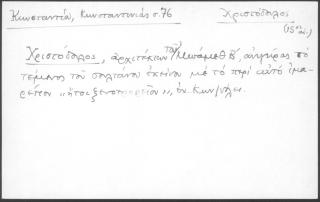 Κωνσταντίου, Κωνσταντινιάς σ. 76 Χριστόδουλος
(15ος αἰ.)
Χριστόδουλος, ἀρχιτέκτων τοῦ Μωάμεθ Β΄, ἀνήγειρε τὸ
τέμενος τοῦ σουλτάνου ἐκείνου μὲ τὸ περὶ αὐτὸ ἰμα-
ρέτιον "ἤτοι ξενοδοχεῖον", ἐν Κων/πόλει.